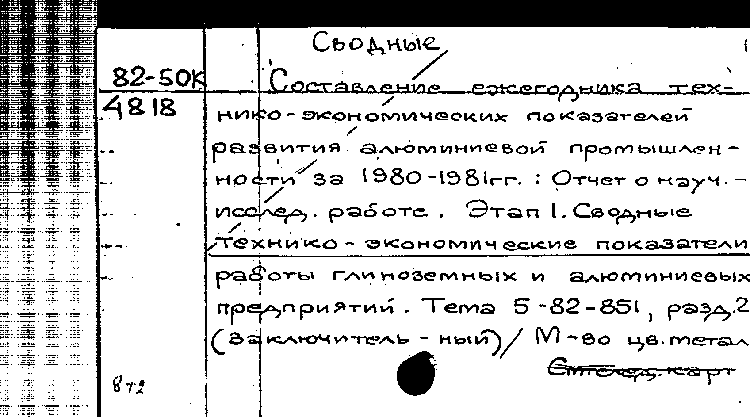 Сводные
82-50К
Составление ежегодника тех-
4818
нико-экономических показателей
развития алюминиевой промышлен-
ности за 1980-1981гг. : Отчет о науч.-
исслед. работе. Этап 1. Сводные
технико-экономические показатели
работы глиноземных и алюминиевых
предприятий. Тема 5-82-851, разд.2
(заключитель-ный)/ М-во цв. метал
карт